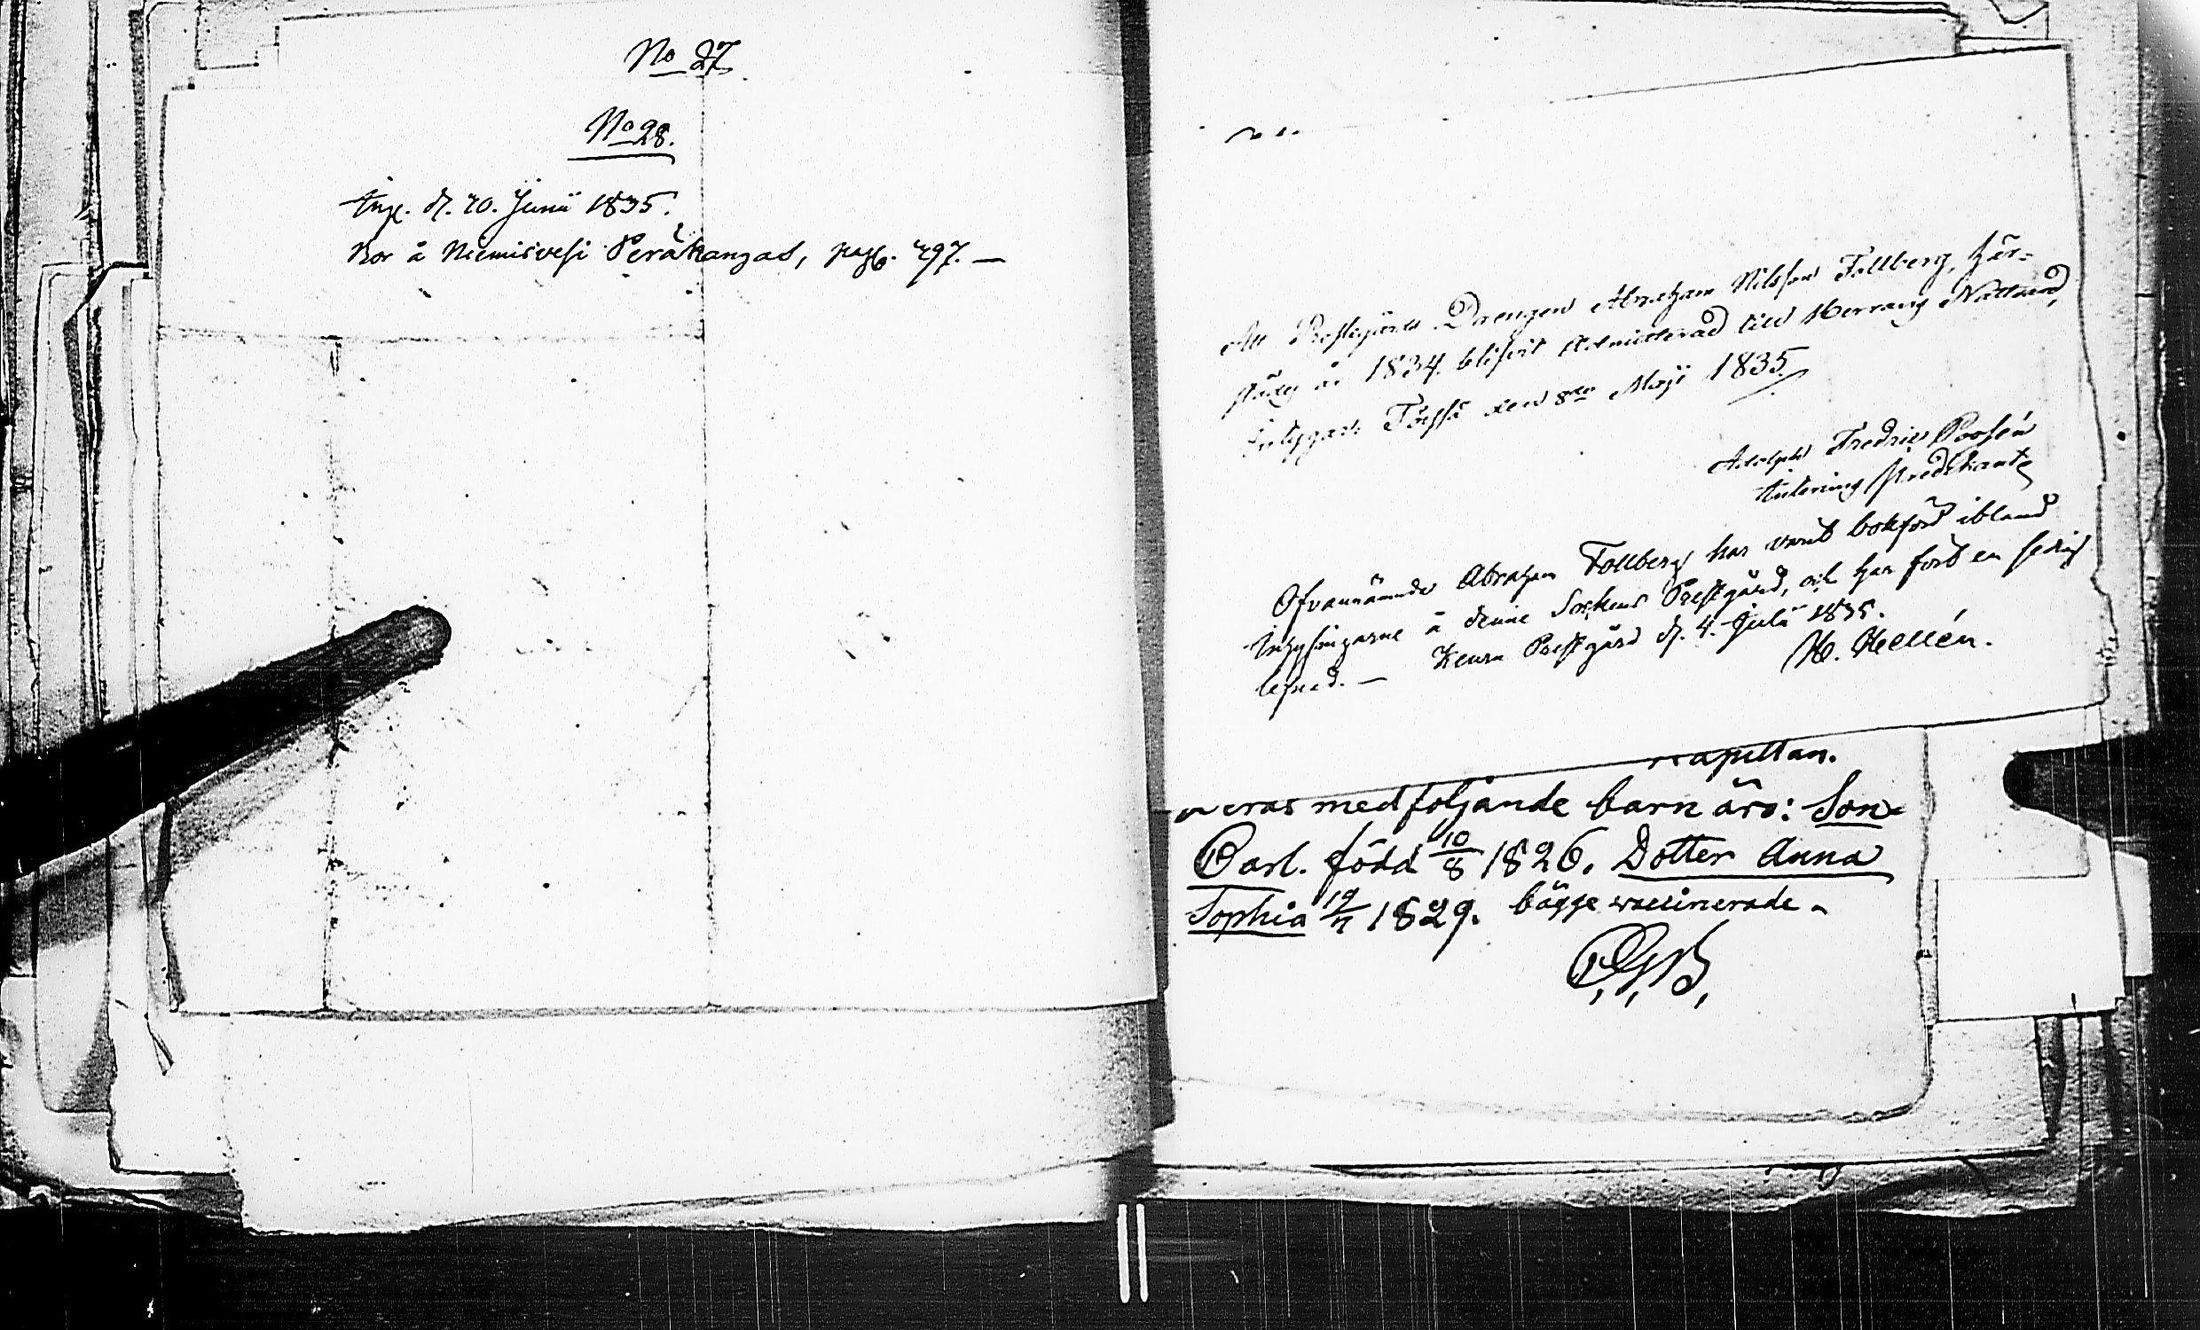 No 27
No 28.
Ink. d. 20. Junii 1835.
Bor å Niemisvesi Peräkangas, pag. 497. —
Att Prestgårds Drengen Abraham Nilsson Follberg, här-
städes år 1834. blifvit Admitterad till Herrans Nattvard,
intygar Föessä den 8de Maji 1835.
Adolph Fredric Poosén
Predikant
Ofvannämnde Abraham Follberg har varit bokförd ibland
inhysingarne å denne Sockens Prestgård, och har fört en sedig
lefnad. — Keuru Prestgård d. 4. Julii 1835.
H. Hellén.
Capellan.
eras medföljande barn äro: Son
Carl. född 10/8 1826. Dotter Anna
Sophia 19/7 1829. bägge vaccinerade -
C, G, B,